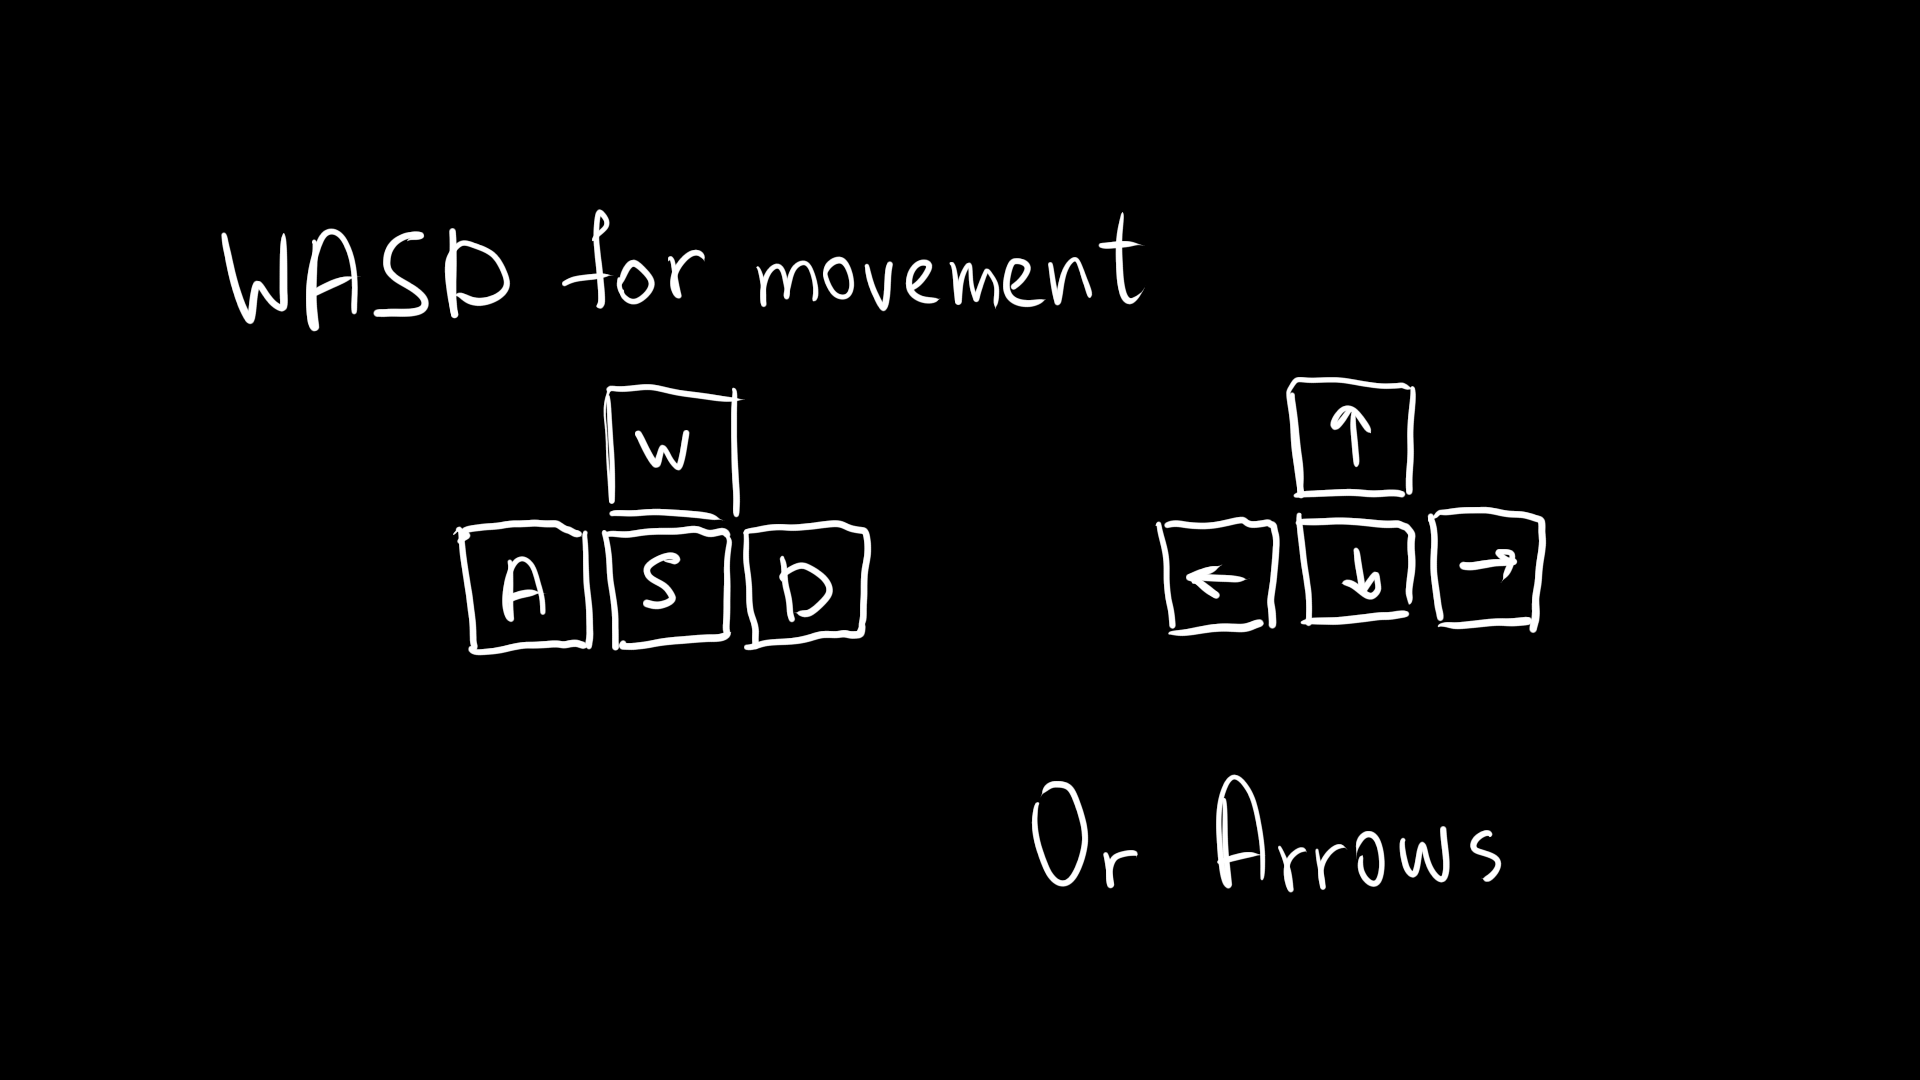 WASD for movement
W ↑
A S D ← ↓ →
Or Arrows